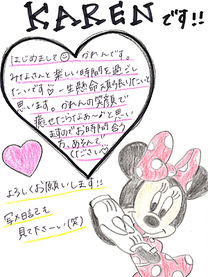 KARENです!!
はじめまして☺かれんです。
みなさんと楽しい時間を過ごし
たいです♡一生懸命頑張りたいと
思います。かれんの笑顔で
癒せたらいいなぁ〜と思い
ますのでお時間合う
方、あそんで
ください♡
よろしくお願いします!!
写メ日記も
見て下さーい(笑)